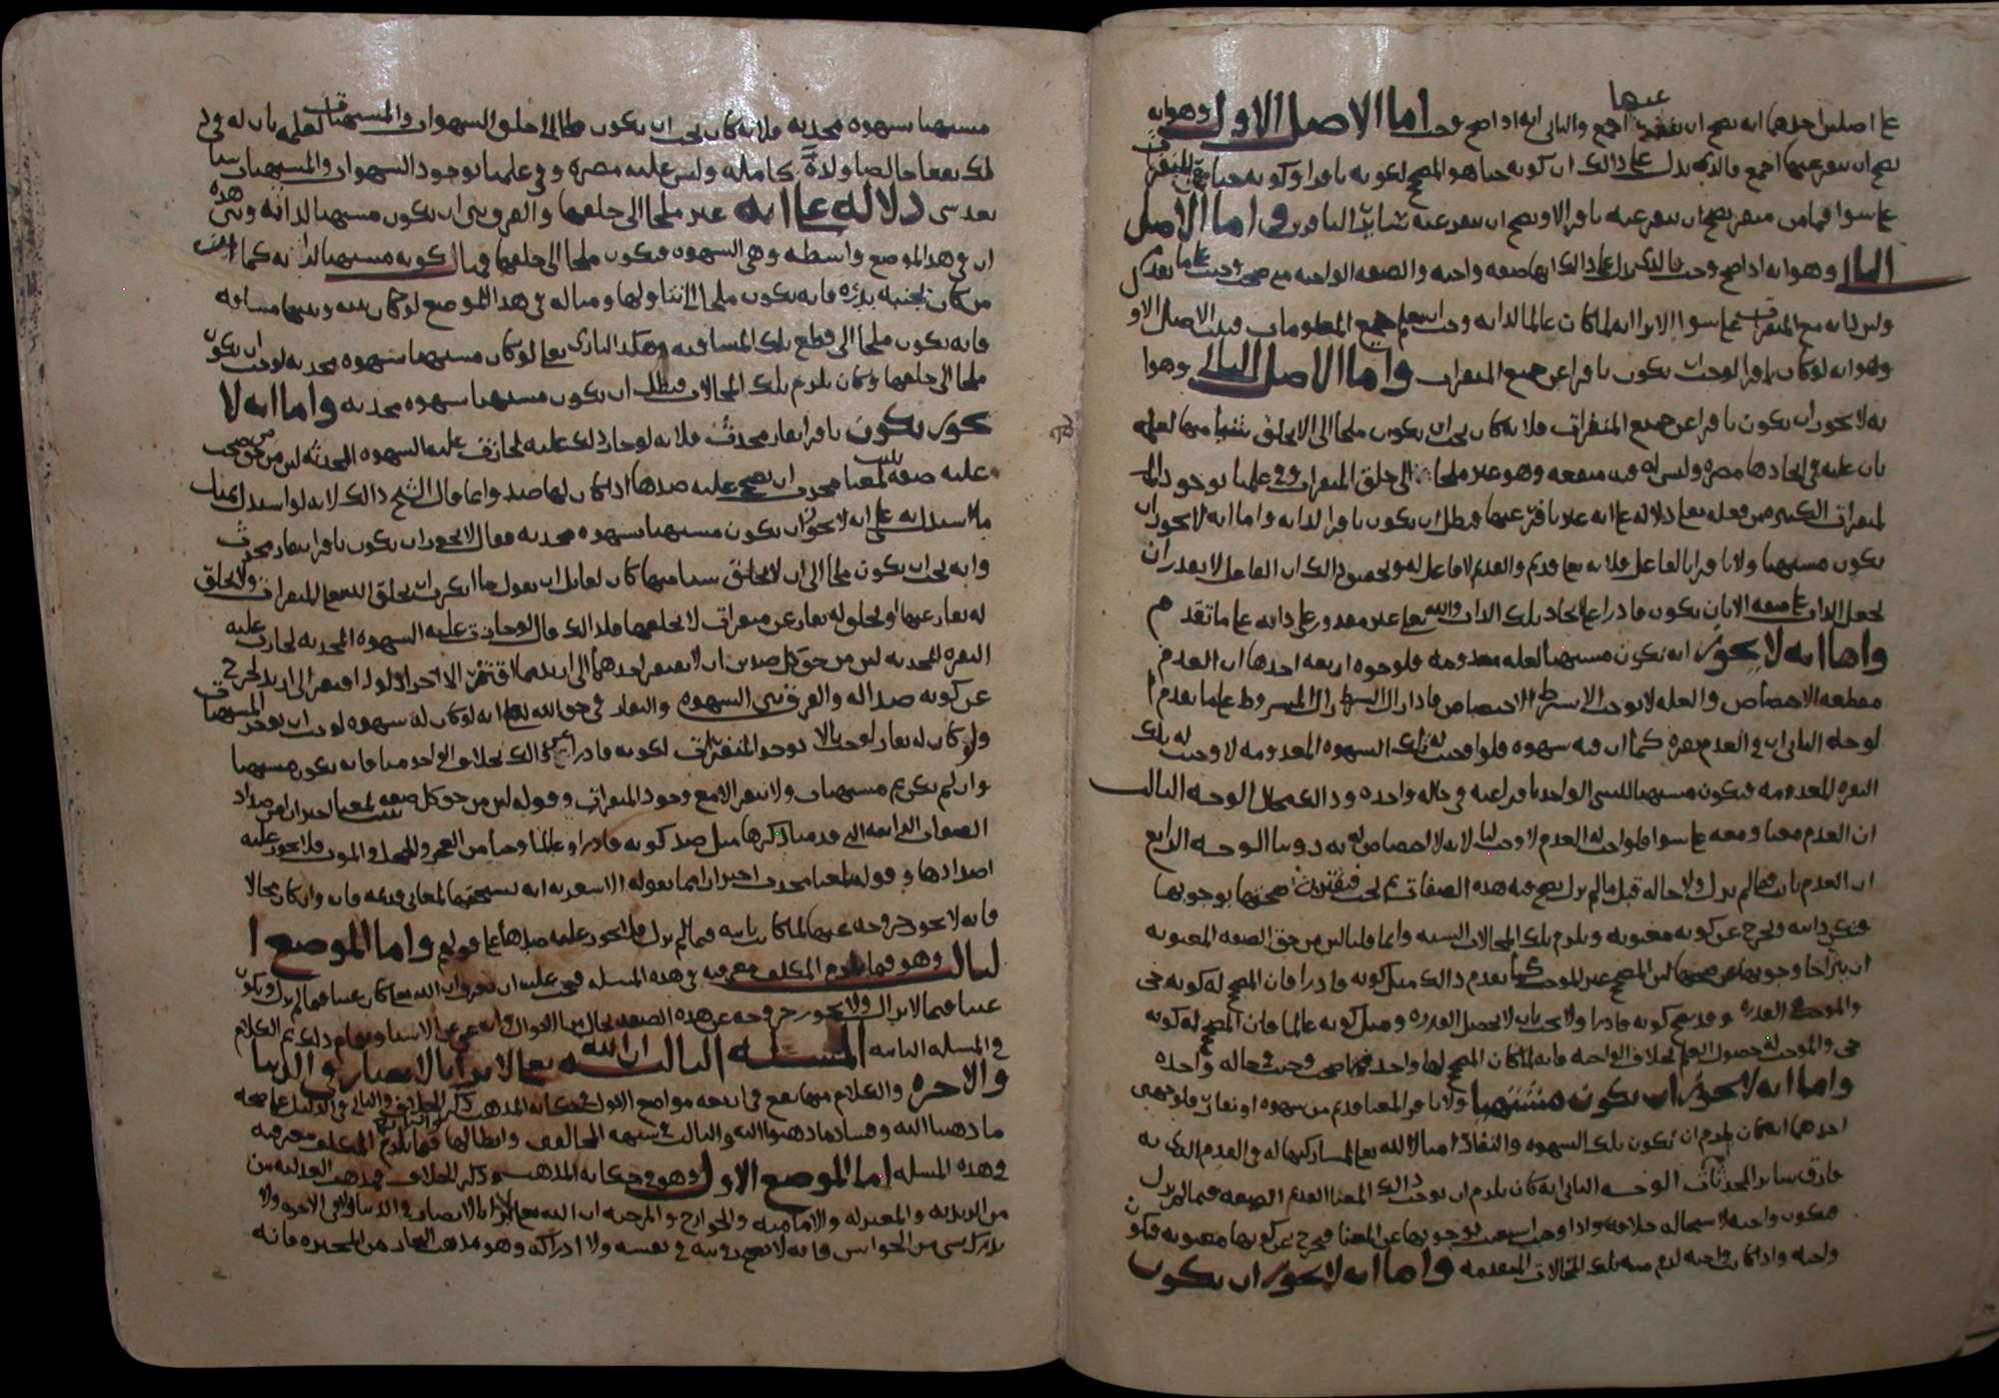 على اصلين احدهما انه يصح ان ينفر عنها اجمع والثاني انه اذا صح وجب اما الاصل الاول وهو انه
يصح ان ينفر عنها اجمع فالذي يدل على ذالك ان كونه حيا هو المصحح لكونه نافرا وكونه حيا مع المنفرات
على سوا فما من منفر يصح ان ينفر عنه نافر الا ويصح ان ينفر عنه سائر النافرين واما الاصل
الثاني وهو انه اذا صح وجب فالذي يدل على ذالك انها صفه واجبه والصفه الواجبه متى صحت وجبت على ما تقدم
وليس بانه مع المنفرات على سوا الا ترا انه لما كان عالما لذاته وجب ان يعلم جميع المعلومات فثبت الاصل الاول
وهو انه لو كان نافرا لوجب ان يكون نافرا عن جميع المنفرات واما الاصل الثاني وهو ا
نه لا يجوز ان يكون نافرا عن جميع المنفرات فلانه كان يجب ان يكون ملجا الى الا يخلق شيا منها لعلمه
بان عليه في ايجادها مضره وليس له فيه منفعه وهو غير ملجا الى خلق المنفرات وفي علمنا بوجود ذالك
المنفرات الكثير من فعله تعا دلاله على انه غير نافر عنها فبطل ان يكون نافرا لذاته واما انه لا يجوز ان
يكون مشتهيا ولا نافرا بالفاعل فلانه تعا قديم والقديم لا فاعل له وتحقيق ذالك ان الفاعل لا يقدر ان
يجعل الذات على صفه الا بان يكون قادرا على ايجاد تلك الذات والله تعا غير مقدور على ذاته على ما تقدم
واما انه لا يجوز ان يكون مشتهيا لعله معدومه فلوجوه اربعه احدها ان العدم
مقطعه الاختصاص والعله لا توجب الا بشرط الاختصاص فاذا زال الشرط زال المشروط على ما تقدم ا
لوجه الثاني ان في العدم نفره كما ان فيه شهوه فلو اوجبت له تلك الشهوه المعدومه لاوجبت له تلك
النفره المعدومه فيكون مشتهيا للشي الواحد نافرا عنه في حاله واحده وذالك محال الوجه الثالث
ان العدم معنا ومعه على سوا فلو اوجب له العدم لاوجب لنا لانه لا اختصاص له به دوننا الوجه الرابع
ان العدم ثابت فيما لم يزل ولا حاله قبل ما لم يزل يصح فيه هذه الصفات ثم تجب فيقترن صحتها بوجوبها
فتكون ذاتيه وتخرج عن كونه معنويه ويلزم تلك المحالات الستة وانما قلنا ليس من حق الصفه المعنويه
ان يتراخا وجوبها عن صحتها لان المصحح غير الموجب كما تقدم ذالك مثل كونه قادرا فان المصحح له كونه حي
والموجب القدره وقد يصح كونه قادرا ولا يجب بان لا تحصل القدره ومثل كونه عالما فان المصحح له كونه
حي والموجب له حصول العلم بخلاف الواجبه فانه لما كان المصحح لها واحد فمتى صحت وجبت في حاله واحده
واما انه لا يجوز ان يكون مشتهيا ولا نافرا لمعنا قديم من شهوه او نفار فلوجهين
احدهما انه كان يلزم ان تكون تلك الشهوه والنفار امثالا لله تعا لمشاركتهما له في القدم الذي به
فارق سائر المحدثات الوجه الثاني انه كان يلزم ان يوجب ذالك المعنا القديم الصفه فيما لم يزل
فتكون واجبه لاستحاله خلافه واذا وجبت استغنت بوجوبها عن المعنا فتخرج عن كونها معنويه فتكون
واجبه واذا كانت واجبه لزم منه تلك المحالات المتقدمه واما انه لا يجوز ان يكون
مشتهيا بشهوه محدثه فلانه كان يجب ان يكون ملجا الى خلق الشهوات والمشتهيات لعلمه بان له في ذ
لك نفعا خالصا ولذة كامله وليس عليه مضره وفي علمنا بوجود الشهوات والمشتهيات شيا
بعد شي دلاله على انه غير ملجا الى خلقها والفرق بين ان يكون مشتهيا لذاته وبين هذه
ان في هذا الموضع واسطه وهي الشهوه فيكون ملجا الى خلقها وفي كونه مشتهيا لذاته كما
من كان بجنبه بدره فانه يكون ملجا الى تناولها ومثاله في هذا الموضع لو كان بينه وبينها مسافه
فانه يكون ملجا الى قطع تلك المسافه وهكذا الباري تعا لو كان مشتهيا بشهوه محدثه لوجب ان يكون
ملجا الى خلقها وكان يلزم تلك المحالات فبطل ان يكون مشتهيا بشهوه محدثه واما انه لا
يجوز ان يكون نافرا بنفار محدث فلانه لو جاز ذلك عليه لجازت عليه الشهوه المحدثه لان من حق من صحت
عليه صفه لمعنا محدث ان يصح عليه ضدها اذا كان لها ضد وانما قال الشيخ ذالك لانه لو استدل بمثل
ما استدل به على انه لا يجوز ان يكون مشتهيا بشهوه محدثه فقال لا يجوز ان يكون نافرا بنفار محدث
وانه يجب ان يكون ملجا الى ان لا يخلق شيا منها كان لقائل ان يقول ما انكرت ان يخلق الله تعا المنفرات ولا يخلق
له نفار عنها او يخلق له نفار عن منفرات لا يخلقها فلذالك قال لو جازت عليه الشهوه المحدثه لجازت عليه
النفره المحدثه لان من حق كل ضدين ان لا يفتقر احدهما الى ازيد مما افتقر الاخر اذ لو افتقر الى ازيد لخرج
عن كونه ضدا له والفرق بين الشهوه والنفار في حق الله تعا انه لو كان له شهوه لوجب ان يوجد المشتهيات
ولو كان له نفار لوجب الا توجد المنفرات لكونه قادرا على ذالك بخلاف الواحد منا فانه يكون مشتهيا
وان لم يكن ثم مشتهيات ولا ينفر الا مع وجود المنفرات وقوله ليس من حق كل صفه تثبت لمعنا احتراز من ضداد
الصفات الذاتيه التي قدمنا ذكرها مثل ضد كونه قادرا وعالما وحيا من العجز والجهل والموت فلا يجوز عليه
اضدادها وقوله لمعنا محدث احترازا مما يقوله الاشعريه انه يستحقها لمعاني قديمه فانه وان كان محالا
فانه لا يجوز خروجه عنها لما كانت ثابته فيما لم يزل فلا تجوز عليه ضدها على قولهم واما الموضع ا
لثالث وهو فيما يلزم المكلف معرفته في هذه المسله فيجب عليه ان يعرف ان الله تعا كان غنيا فيما لم يزل ويكون
غنيا فيما لا يزال ولا يجوز خروجه عن هذه الصفه بحال من الاحوال وانه غني عن الاشيا وتمام ذلك ثم الكلام
في المسله الثانيه المسله الثالثه ان الله تعا لا يرا بالابصار في الدنيا
والاخره والكلام منها يقع في اربعه مواضع الاول في حكايه المذهب وذكر الخلاف والثاني في الدليل على صحه
ما ذهبنا اليه وفساد ما ذهبوا اليه والثالث في شبهه المخالفين وابطالها والرابع فيما يلزم المكلف معرفته
في هذه المسله اما الموضع الاول وهو في حكايه المذهب وذكر الخلاف فمذهب العدليه من
من الزيديه والمعتزله والاماميه والخوارج والمرجيه ان الله تعا لا يرا بالابصار في الدنيا ولا في الاخره ولا
يدرك بشي من الحواس فانه لا تصح رويته في نفسه ولا ادراكه وهو مذهب النجار من المجبره فانه